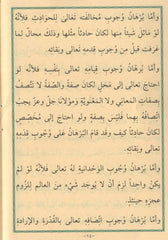 وَأَمَّا بُرْهَانُ وُجُوبِ مُخَالَفَتِهِ تَعَالَى لِلْحَوَادِثِ فَلِأَنَّهُ
لَوْ مَاثَلَ شَيْئًا مِنْهَا لَكَانَ حَادِثًا مِثْلَهَا وَذَلِكَ مُحَالٌ لِمَا
عَرَفْتَ قَبْلُ مِنْ وُجُوبِ قِدَمِهِ تَعَالَى وَبَقَائِهِ.
وَأَمَّا بُرْهَانُ وُجُوبِ قِيَامِهِ تَعَالَى بِنَفْسِهِ فَلِأَنَّهُ لَوِ
احْتَاجَ إِلَى مَحَلٍّ لَكَانَ صِفَةً وَالصِّفَةُ لَا تَتَّصِفُ
بِصِفَاتِ الْمَعَانِي وَلَا الْمَعْنَوِيَّةِ وَمَوْلَانَا جَلَّ وَعَزَّ يَجِبُ
اتِّصَافُهُ بِهِمَا فَلَيْسَ بِصِفَةٍ وَلَوِ احْتَاجَ إِلَى مُخَصِّصٍ
لَكَانَ حَادِثًا كَيْفَ وَقَدْ قَامَ الْبُرْهَانُ عَلَى وُجُوبِ قِدَمِهِ
تَعَالَى وَبَقَائِهِ.
وَأَمَّا بُرْهَانُ وُجُوبِ الْوَحْدَانِيَّةِ لَهُ تَعَالَى فَلِأَنَّهُ لَوْ لَمْ
يَكُنْ وَاحِدًا لَزِمَ أَنْ لَا يُوجَدَ شَيْءٌ مِنَ الْعَالَمِ لِلُزُومِ
عَجْزِهِ حِينَئِذٍ.
وَأَمَّا بُرْهَانُ وُجُوبِ اتِّصَافِهِ تَعَالَى بِالْقُدْرَةِ وَالْإِرَادَةِ